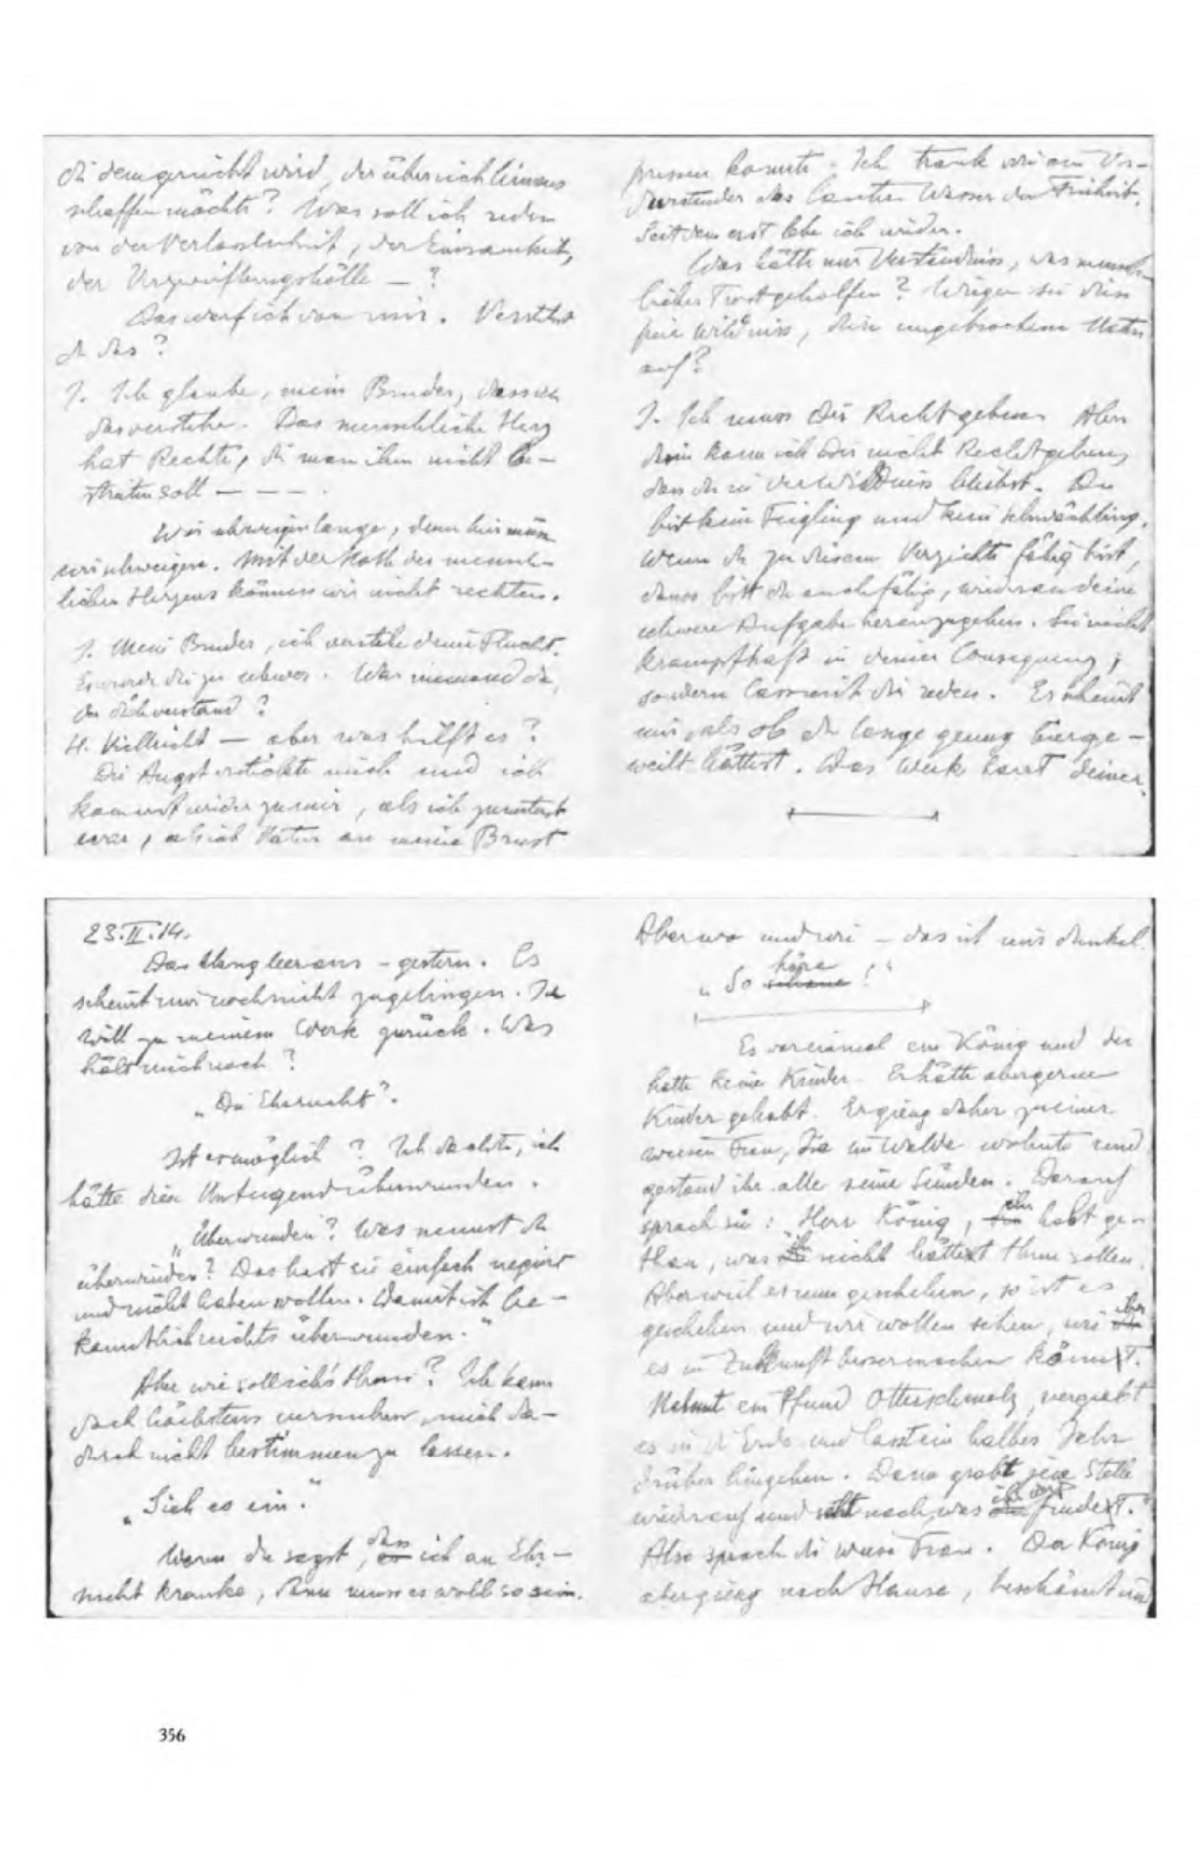 die dem gereicht wird, der über sich hinaus
schaffen möchte? Was soll ich reden
von der Verlassenheit, der Einsamkeit,
der Verzweiflungshölle — ?
Das werf ich von mir. Verstehst
du das?
J. Ich glaube, mein Bruder, dass ich
das verstehe. Das menschliche Herz
hat Rechte, die man ihm nicht be-
streiten soll — — — .
Wir schweigen lange, denn hier müssen
wir schweigen. Mit der Noth des mensch-
lichen Herzens können wir nicht rechten.
J. Mein Bruder, ich verstehe deine Flucht.
Es wurde dir zu schwer. War niemand da,
der dich verstand?
H. Vielleicht — aber was hilft es?
Die Angst erstickte mich und ich
kam erst wieder zu mir, als ich zuunterst
war, als ich Natur an meine Brust
pressen konnte. Ich trank wie ein Ver-
durstender das lautere Wasser der Freiheit.
Seitdem erst lebe ich wieder.
Was hätte mir Verständniss, was mensch-
licher Trost geholfen? Wiegen sie diese
freie Wildniss, diese ungebrochene Natur
auf?
J. Ich muss dir Recht geben. Aber
darin kann ich dir nicht Recht geben,
dass du in der Wildniss bleibst. Du
bist kein Feigling und kein Schwächling.
Wenn du zu diesem Verzichte fähig bist,
dann bist du auch fähig, wieder an deine
schwere Aufgabe heranzugehen. Sei nicht
krampfhaft in deiner Consequenz,
sondern lass mit dir reden. Es scheint
mir, als ob du lange genug hier ge-
weilt hättest. Das Werk harrt deiner.
23.II.14.
Das klang leer aus – gestern. Es
scheint mir noch nicht zu gelingen. Ich
will zu meinem Werk zurück. Was
hält mich noch?
„Die Ehrsucht".
Ist es möglich? Ich dachte, ich
hätte diese Untugend überwunden.
„Überwunden? Was nennst du
überwinden? Du hast sie einfach negiert
und nicht haben wollen. Damit ist be-
kanntlich nichts überwunden."
Aber wie soll ich's thun? Ich kann
doch höchstens versuchen, mich da-
durch nicht bestimmen zu lassen.
„Sieh es ein."
Wenn du sagst, dass ich an Ehr-
sucht kranke, dann muss es wohl so sein.
Aber wo und wie – das ist mir dunkel.
„So höre schaue!"
Es war einmal ein König und der
hatte keine Kinder. Er hätte aber gerne
Kinder gehabt. Er gieng daher zu einer
weisen Frau, die im Walde wohnte und
gestand ihr alle seine Sünden. Darauf
sprach sie: „Herr König, ihr habt ge-
than, was ihr nicht hättet thun sollen.
Aber weil es nun geschehen, so ist es
geschehen und wir wollen sehen, wie ihr
es in Zukunft besser machen könnt.
Nehmt ein Pfund Otterschmalz, vergrabt
es in die Erde und lasst ein halbes Jahr
drüber hingehen. Dann grabt jene Stelle
wieder auf und seht nach, was ihr dort findet."
Also sprach die weise Frau. Der König
aber gieng nach Hause, beschämt und
356